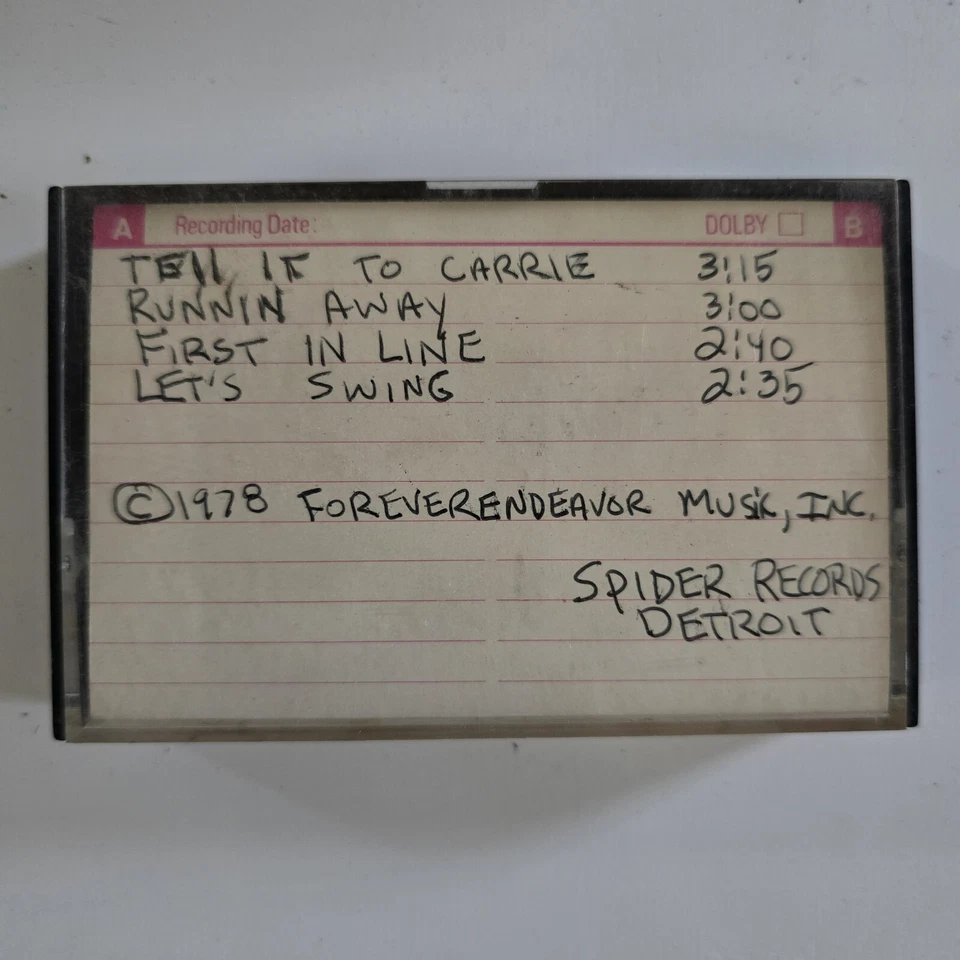 A Recording Date: DOLBY B
TELL IT TO CARRIE 3:15
RUNNIN AWAY 3:00
FIRST IN LINE 2:40
LET'S SWING 2:35
©1978 FOREVERENDEAVOR MUSIC, INC.
SPIDER RECORDS
DETROIT